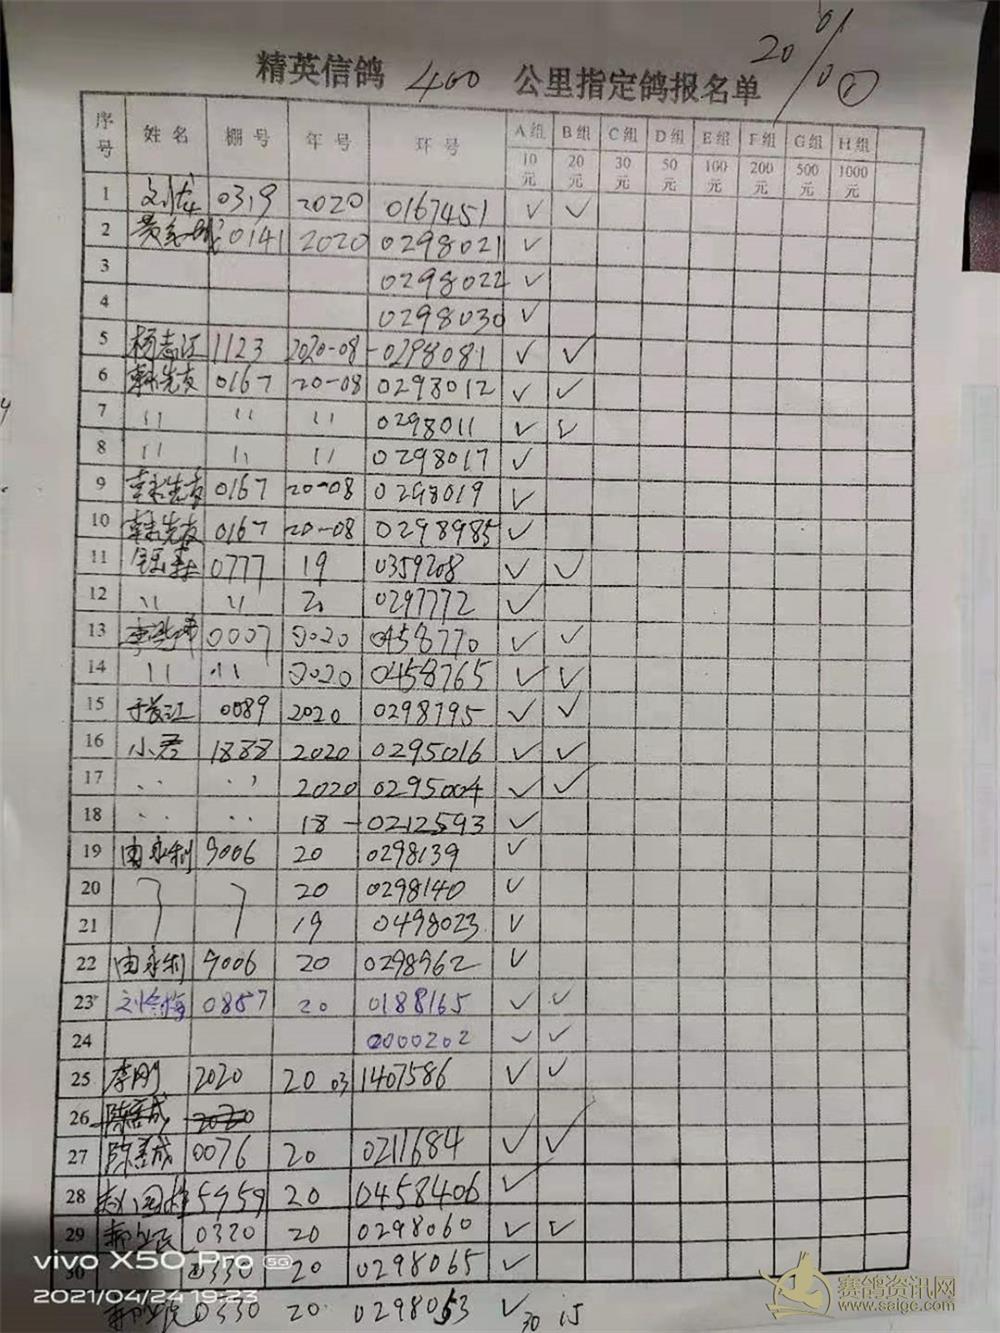 20/01
/0 ①
精英信鸽 400 公里指定鸽报名单
序号 姓名 棚号 年号 环号 A组 B组 C组 D组 E组 F组 G组 H组
10元 20元 30元 50元 100元 200元 500元 1000元
1 2020 0167451 ✓ ✓
2 0141 2020 0298021 ✓
3 0298022 ✓
4 0298030 ✓
5 杨志江 1123 2020-08-0298081 ✓ ✓
6 韩先友 0167 20-08 0298012 ✓ ✓
7 〃 〃 〃 0298011 ✓ ✓
8 〃 〃 〃 0298017 ✓
9 韩先友 0167 20-08 0298019 ✓
10 韩先友 0167 20-08 0298985 ✓
11 0777 19 0359208 ✓ ✓
12 〃 〃 20 0297772 ✓
13 0007 2020 0458770 ✓ ✓
14 〃 〃 2020 0458765 ✓ ✓
15 0089 2020 0298795 ✓ ✓
16 小君 1888 2020 0295016 ✓ ✓
17 〃 〃 2020 0295004 ✓ ✓
18 〃 〃 18-0212593 ✓
19 由永利 9006 20 0298139 ✓
20 20 0298140 ✓
21 19 0498023 ✓
22 由永利 9006 20 0298962 ✓
23 0857 20 0188165 ✓ ✓
24 0000202 ✓ ✓
25 李刚 2020 20 03 1407586 ✓ ✓
26 2020
27 0076 20 0211684 ✓ ✓
28 5959 20 0458406 ✓
29 0320 20 0298060 ✓ ✓
30 0330 20 0298065 ✓
0330 20 0298053 ✓ 30 15
vivo X50 Pro 5G
2021/04/24 19:23
赛鸽资讯网
www.saige.com